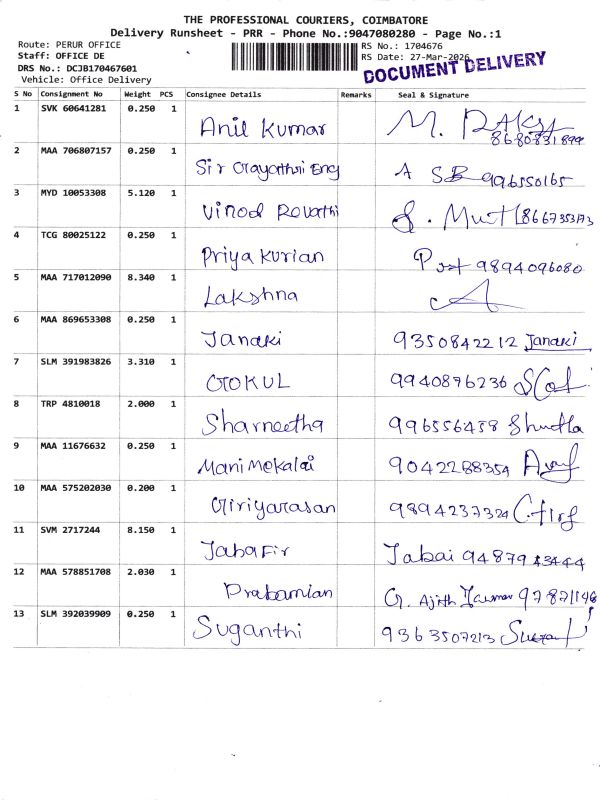 THE PROFESSIONAL COURIERS, COIMBATORE
Delivery Runsheet - PRR - Phone No.:9047080280 - Page No.:1
Route: PERUR OFFICE RS No.: 1704676
Staff: OFFICE DE RS Date: 27-Mar-2026
DRS No.: DCJB170467601
DOCUMENT DELIVERY
Vehicle: Office Delivery
S No Consignment No Weight PCS Consignee Details Remarks Seal & Signature
1 SVK 60641281 0.250 1 Anil Kumar M.
8680831899
2 MAA 706807157 0.250 1 Sir Gayathri Eng A SB 996550165
3 MYD 10053308 5.120 1 Vinod Revathi 8667353173
4 TCG 80025122 0.250 1 Priya Kurian 9894096080
5 MAA 717012090 8.340 1 Lakshna
6 MAA 869653308 0.250 1 Janaki 9350842212 Janaki
7 SLM 391983826 3.310 1 GOKUL 9940876236
8 TRP 4810018 2.000 1 Sharneetha 996556458
9 MAA 11676632 0.250 1 Manimekalai 9042288354
10 MAA 575202030 0.200 1 Giriyarasan 9894237324
11 SVM 2717244 8.150 1 Jabafir Jabai 94879 43444
12 MAA 578851708 2.030 1 G. Ajith Kumar
13 SLM 392039909 0.250 1 Suganthi 9363507213